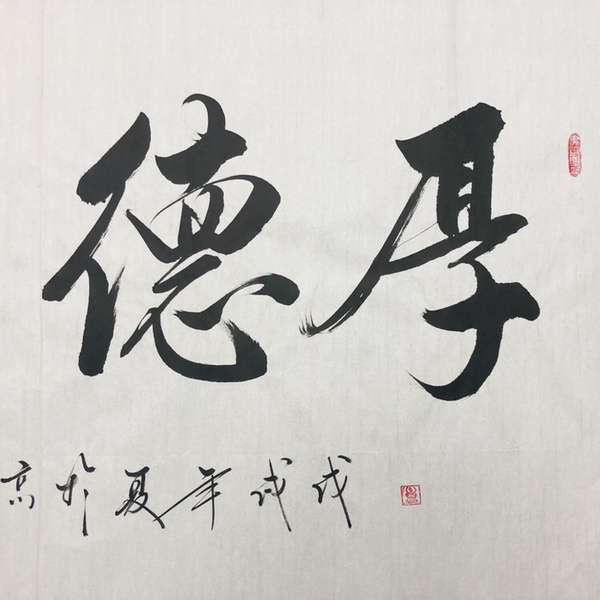 厚德
戊戌年夏於高